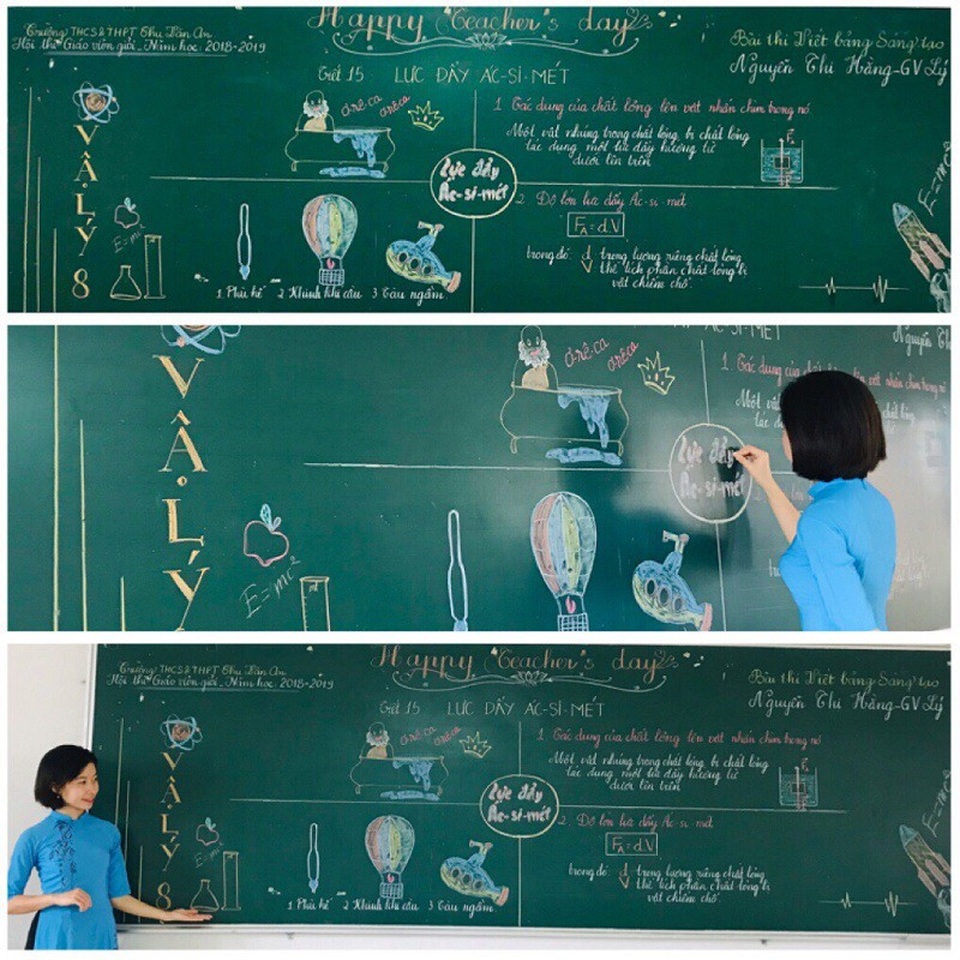 Happy Teacher's day
Trường THCS&THPT Chu Văn An
Hội thi Giáo viên giỏi_Năm học: 2018-2019
Bài thi Viết bảng Sáng tạo
Nguyễn Thi Hằng-GV Lý
Tiết 15 LỰC ĐẨY ÁC-SI-MÉT
VẬT LÝ 8
E=mc²
ơ-rê-ca
ơrêca
Lực đẩy
Ác-si-mét
1. Tác dụng của chất lỏng lên vật nhấn chìm trong nó.
Một vật nhúng trong chất lỏng bị chất lỏng
tác dụng một lực đẩy hướng từ
dưới lên trên
2. Độ lớn lực đẩy Ác-si-mét
F_A = d.V
trong đó: d trọng lượng riêng chất lỏng
V thể tích phần chất lỏng bị
vật chiếm chỗ.
1 Phù kế 2 Khinh khí cầu 3 Tàu ngầm
E=mc²
ÁC-SI-MÉT
Nguyễn Th
VẬ.LÝ
ơ-rê-ca
ơrêca
1. Tác dụng của chất lỏng lên vật nhấn chìm trong nó
Một vật
tác dụ
chất lỏng
Lực đẩy
Ác-si-mét
2.
E=mc²
Happy Teacher's day
Trường THCS&THPT Chu Văn An
Hội thi Giáo viên giỏi_Năm học: 2018-2019
Bài thi Viết bảng Sáng tạo
Nguyễn Thi Hằng-GV Lý
Tiết 15 LỰC ĐẨY ÁC-SI-MÉT
VẬ.LÝ 8
E=mc²
ơ-rê-ca
ơrêca
Lực đẩy
Ác-si-mét
1. Tác dụng của chất lỏng lên vật nhấn chìm trong nó
Một vật nhúng trong chất lỏng bị chất lỏng
tác dụng một lực đẩy hướng từ
dưới lên trên
2. Độ lớn lực đẩy Ác-si-mét
F_A = d.V
trong đó: d trọng lượng riêng chất lỏng
V thể tích phần chất lỏng bị
vật chiếm chỗ.
1 Phù kế 2 Khinh khí cầu 3 Tàu ngầm
E=mc²